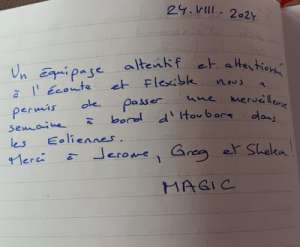 24.VIII.2024
Un équipage attentif et attentionné
à l'écoute et flexible nous a
permis de passer une merveilleuse
semaine à bord d'Houbara dans
les Eoliennes.
Merci à Jerome, Greg et Sheka!
MAGIC